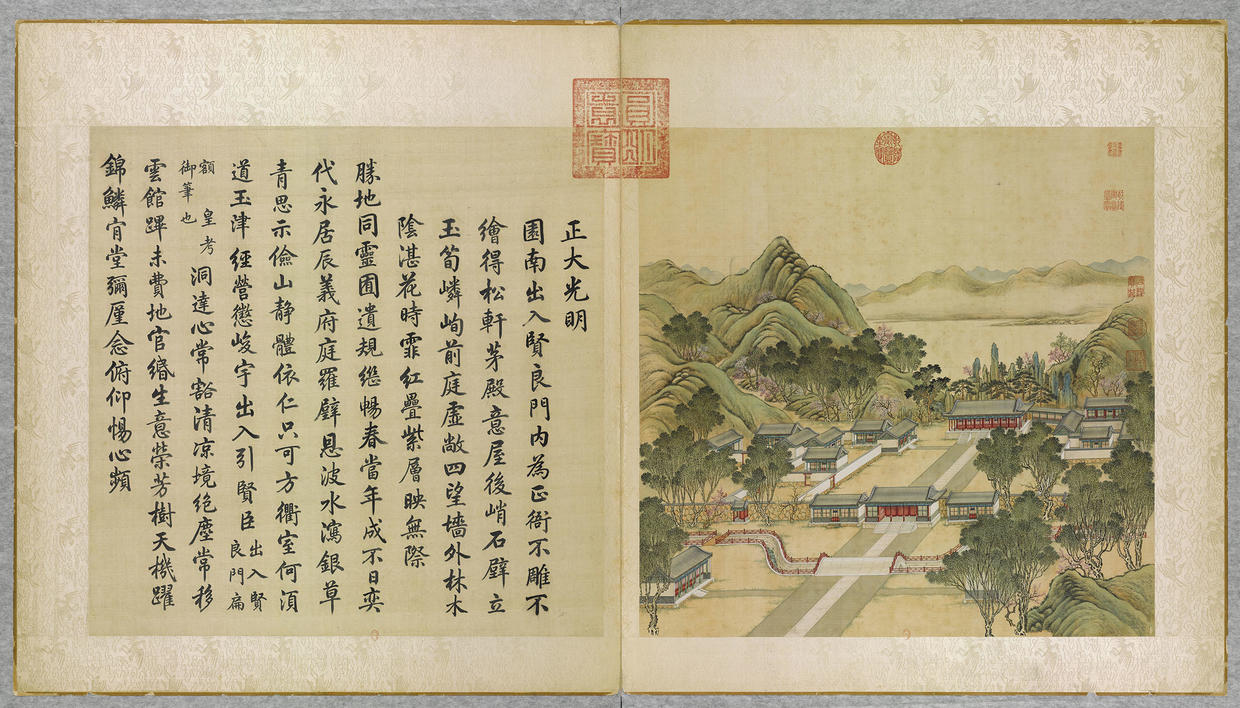 正大光明
園南出入賢良門內為正衙不雕不
繪得松軒茅殿意屋後峭石壁立
玉筍嶙峋前庭虛敞四望墻外林木
陰湛花時霏紅疊紫層映無際
勝地同靈囿遺規継暢春當年成不日奕
代永居辰義府庭羅壁恩波水瀉銀草
青思示儉山静體依仁只可方衢室何須
道玉津經營懲峻宇出入引賢臣出入賢良門扁
額皇考御筆也洞達心常豁清凉境絕塵常移
雲館蹕未費地官緡生意榮芳樹天機躍
錦鱗肎堂彌厪念俯仰惕心頻